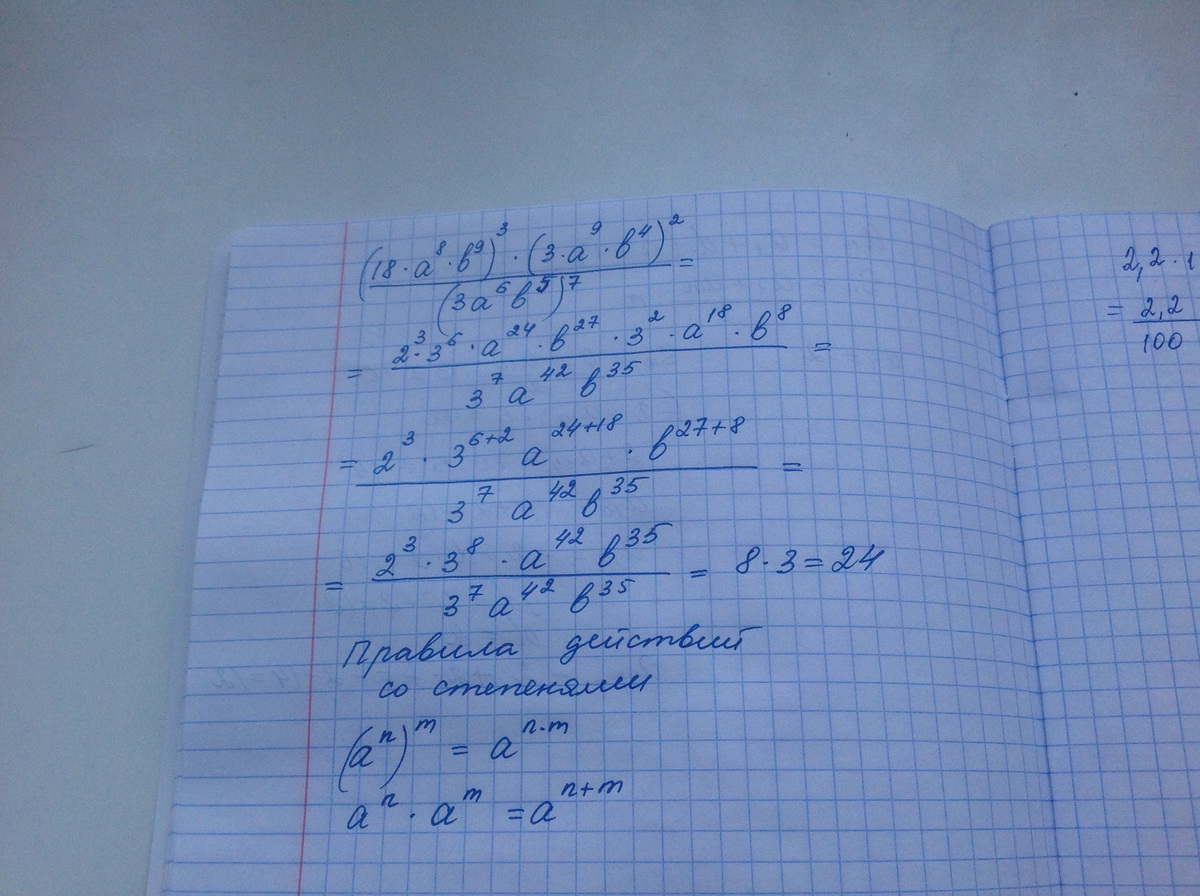 (18·a⁸·в⁹)³·(3·a⁹·в⁴)² / (3a⁶в⁵)⁷ =
= 2³·3⁶·a²⁴·в²⁷·3²·a¹⁸·в⁸ / 3⁷a⁴²в³⁵ =
= 2³·3⁶⁺²a²⁴⁺¹⁸·в²⁷⁺⁸ / 3⁷a⁴²в³⁵ =
= 2³·3⁸·a⁴²в³⁵ / 3⁷a⁴²в³⁵ = 8·3=24
Правила действий
со степенями
(aⁿ)ᵐ = aⁿ·ᵐ
aⁿ·aᵐ = aⁿ⁺ᵐ
2,2·1
= 2,2 / 100